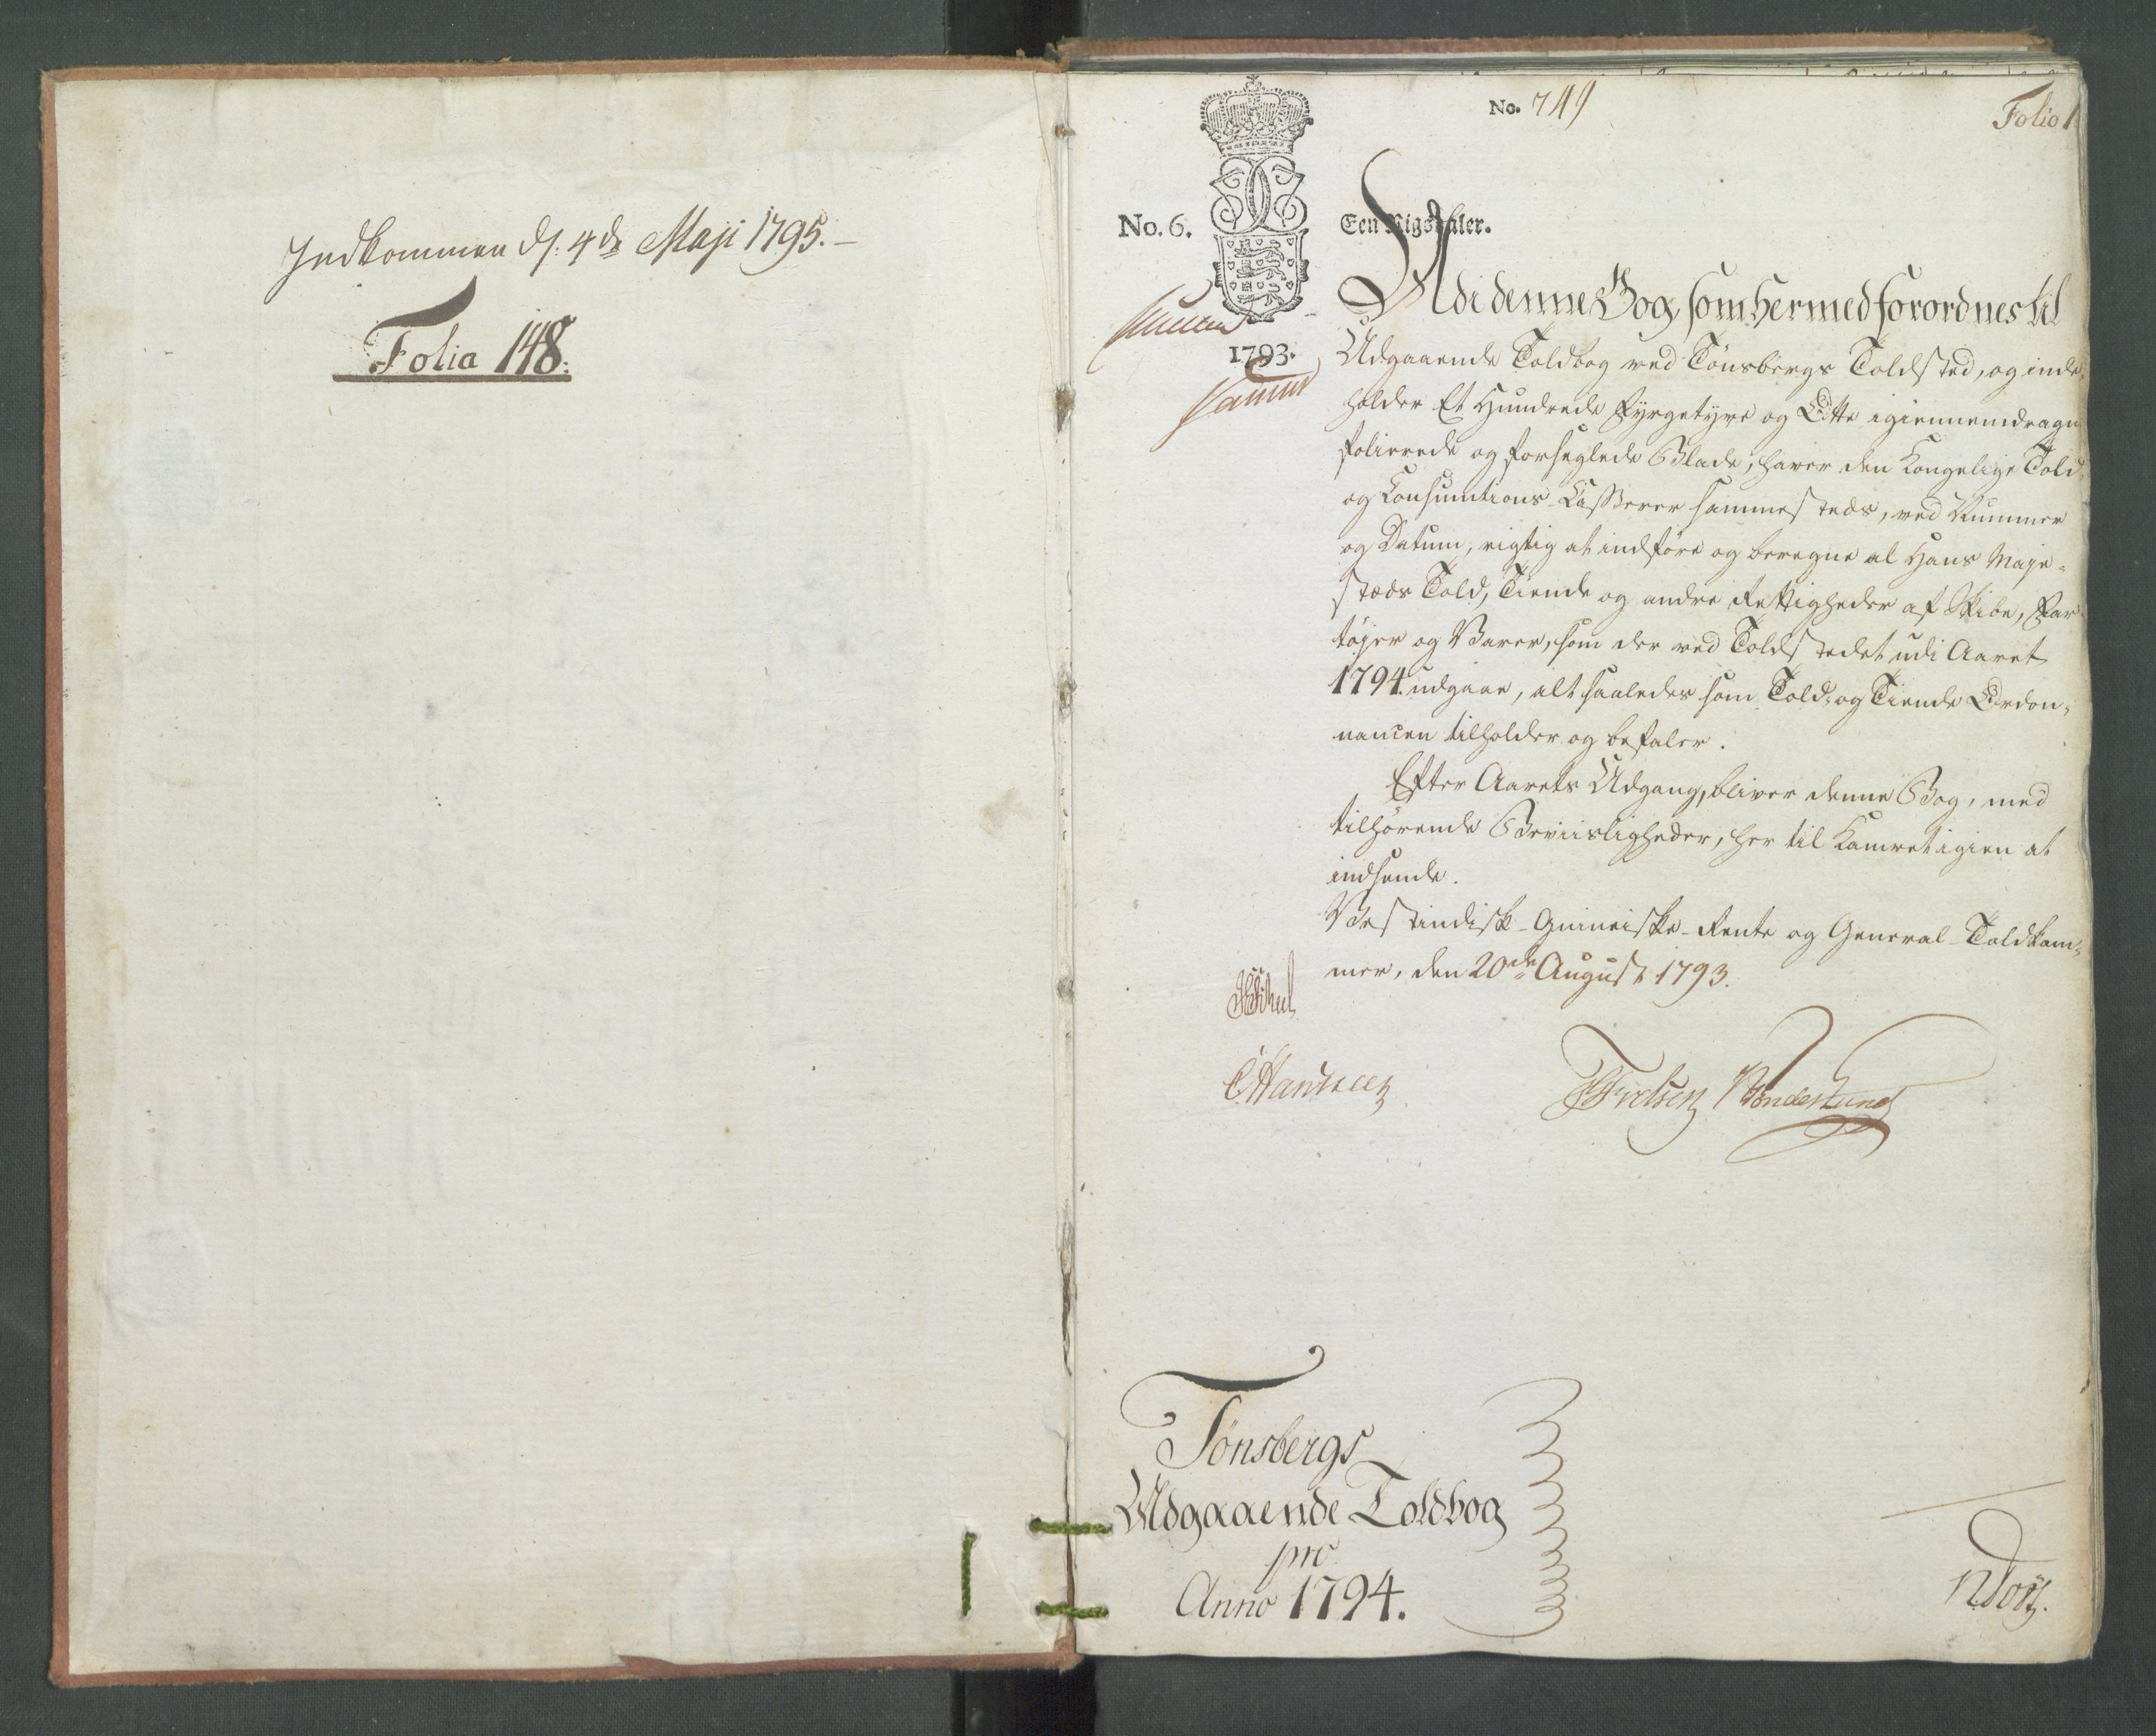 Indkommen d. 4de Maji 1795.
Folia 148.
No. 749
Folio 1
No. 6.
Een Rigsdaler.
1793.
Udi denne Bog, som hermed forordnes til
Udgaaende Toldbog ved Tönsbergs Toldsted, og inde-
holder Et Hundrede Fyrgetyve og Otte igiennemdragne
folierede og forseglede Blade, haver den Kongelige Told-
og Consumtions-Casserer sammesteds, ved Nummer
og Datum, rigtig at indföre og beregne al Hans Maje-
stæts Told, Tiende og andre Rettigheder af Skibe, Far-
töjer og Varer, som der ved Toldstedet udi Aaret
1794. udgaae, alt saaledes som Told- og Tiende Ordon-
nancen tilholder og befaler.
Efter Aarets Udgang, bliver denne Bog, med
tilhörende Beviisligheder, her til Kamret igien at
indsende.
Vestindisk-Guineiske-Rente og General-Toldkam-
mer, den 20de August 1793.
Tönsbergs
Udgaaende Toldbog
pro
Anno 1794.